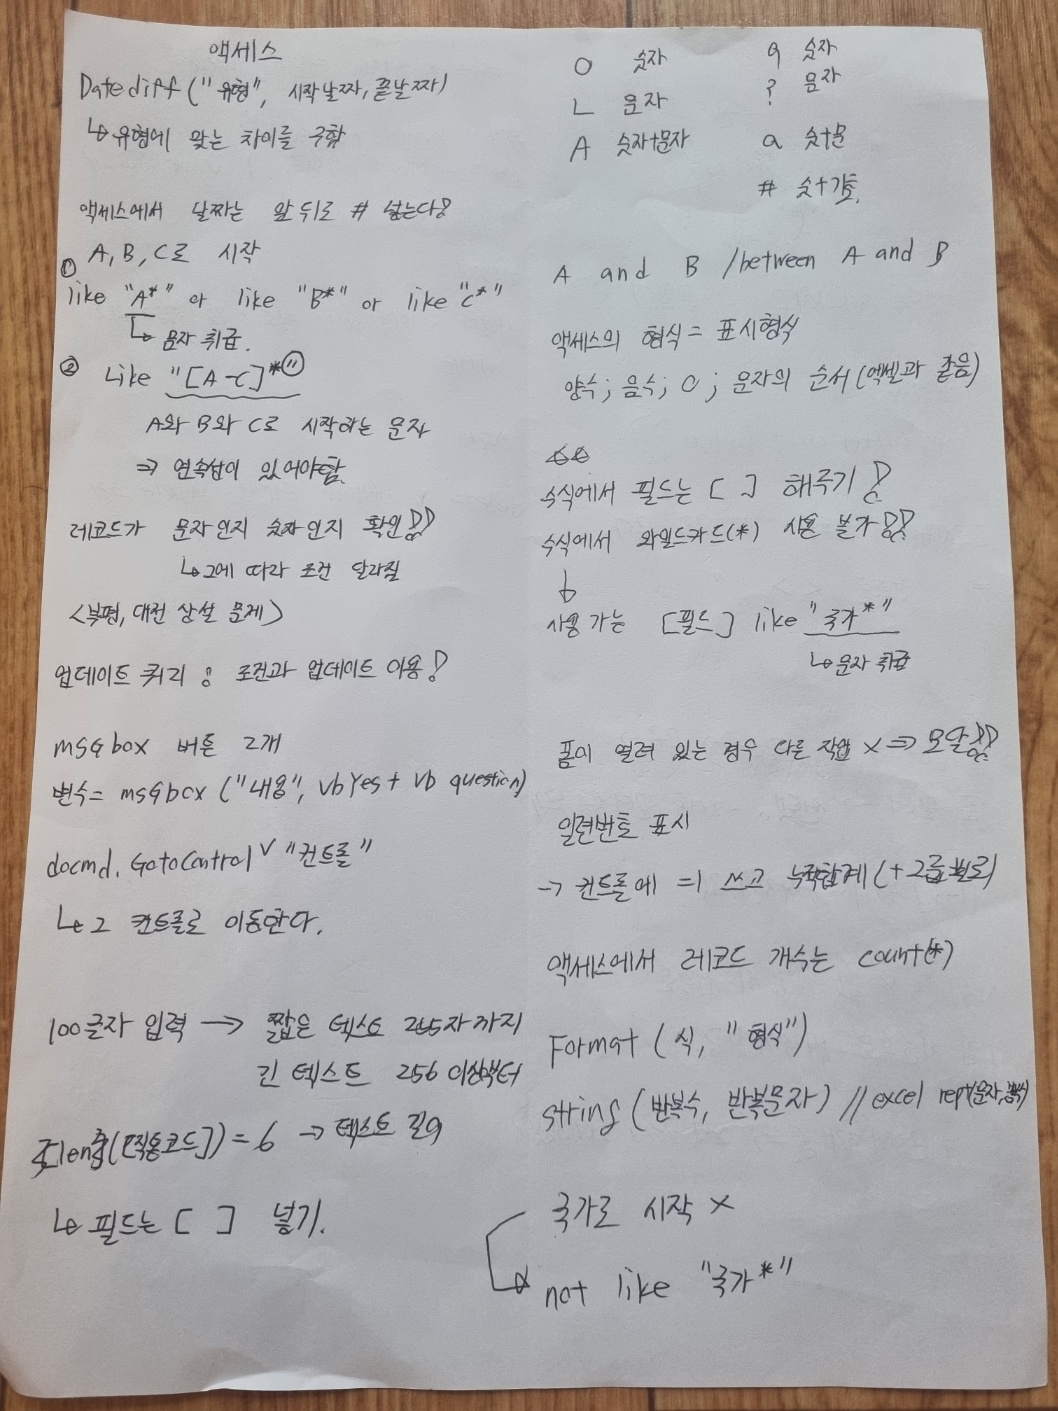 액세스
Datediff ("유형", 시작날짜, 끝날짜)
↳ 유형에 맞는 차이를 구함
액세스에서 날짜는 앞 뒤로 # 넣는다!
① A, B, C로 시작
like "A*" or like "B*" or like "C*"
↳ 문자 취급.
② Like "[A-C]*"
A와 B와 C로 시작하는 문자
⇒ 연속성이 있어야함.
레코드가 문자인지 숫자인지 확인!!
↳ 그에 따라 조건 달라짐
<부평, 대전 상설 문제>
업데이트 쿼리 : 조건과 업데이트 이용!
msgbox 버튼 2개
변수= msgbox ("내용", vbYes + vb question)
docmd. GotoControl ∨ "컨트롤"
↳ 그 컨트롤로 이동한다.
100글자 입력 → 짧은 텍스트 255자까지
긴 텍스트 256 이상부터
len([직종코드])=6 → 텍스트 길이
↳ 필드는 [ ] 넣기.
0 숫자 9 숫자
L 문자 ? 문자
A 숫자+문자 a 숫+문
# 숫+기호.
A and B /between A and B
액세스의 형식 = 표시형식
양수; 음수; 0; 문자의 순서(엑셀과 같음)
☆☆
수식에서 필드는 [ ] 해주기!
수식에서 와일드카드(*) 사용 불가!!
↓
사용 가능 [필드] like "국가*"
↳ 문자 취급
폼이 열려 있는 경우 다른 작업 X ⇒ 모달!!
일련번호 표시
→ 컨트롤에 =1 쓰고 누적합계(+그룹별로)
액세스에서 레코드 개수는 count(*)
Format (식, "형식")
string (반복수, 반복문자) // excel rept(문자,)
국가로 시작 X
↳ not like "국가*"